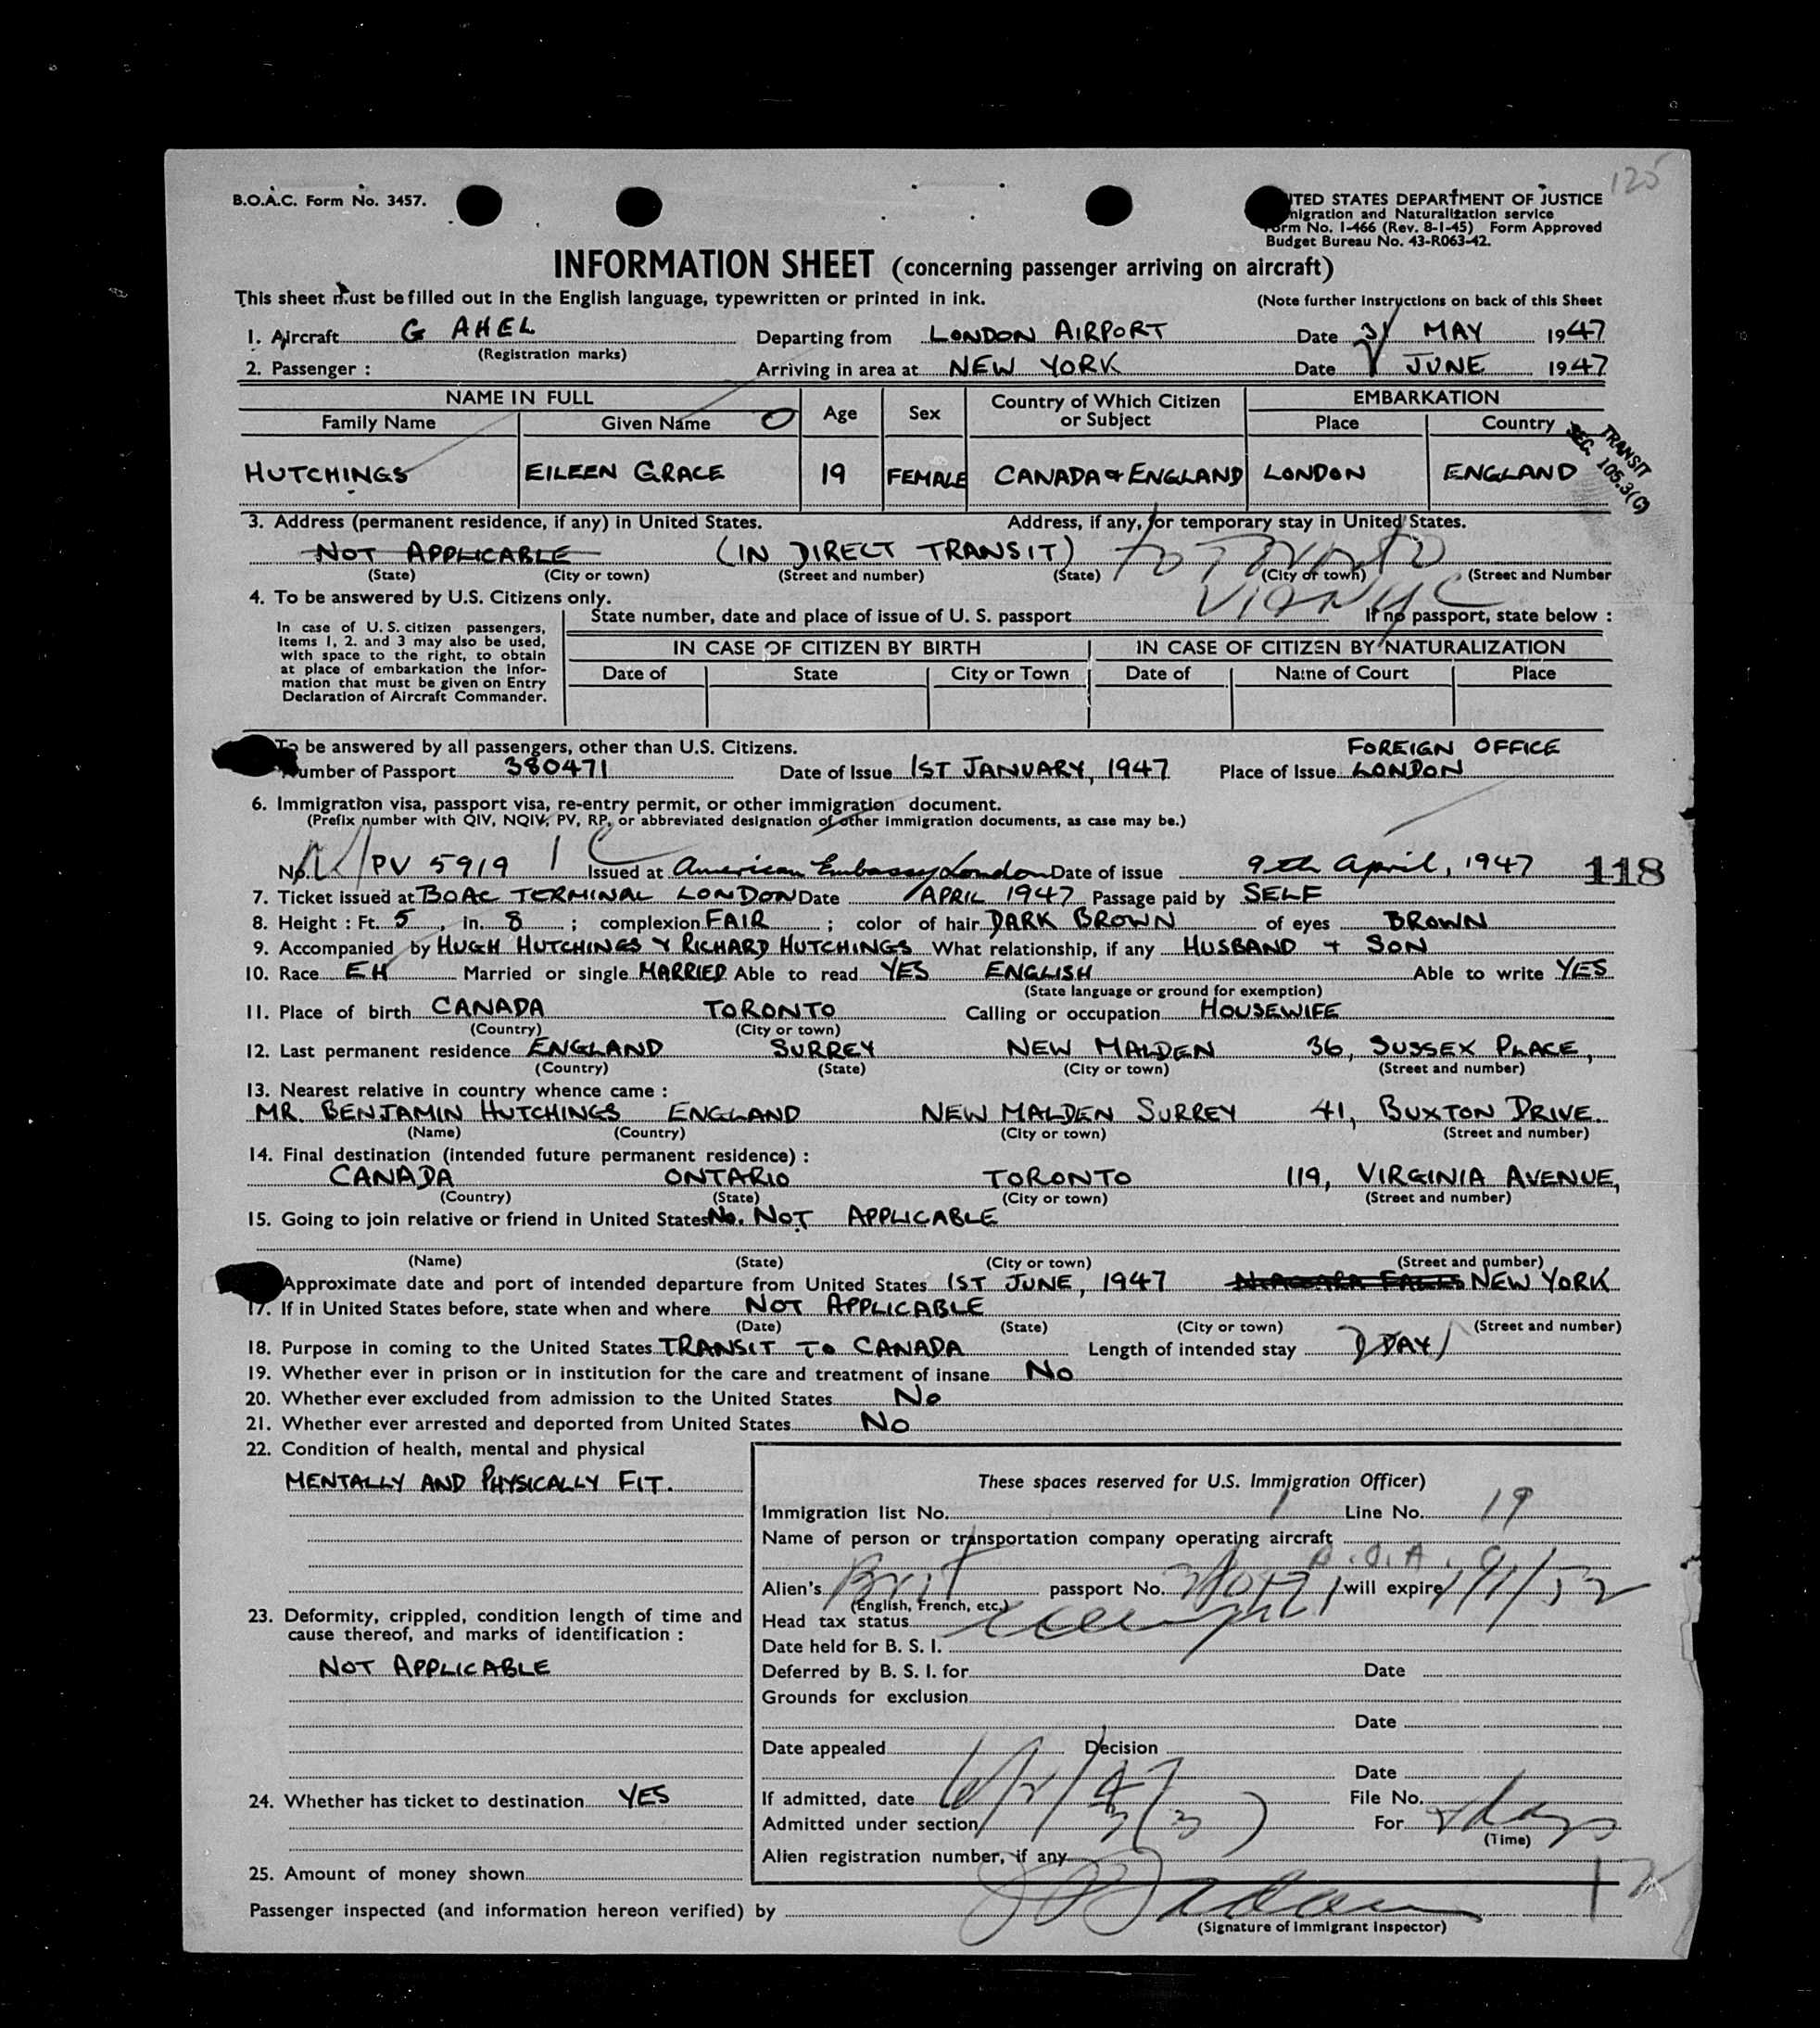 125
B.O.A.C. Form No. 3457.
ITED STATES DEPARTMENT OF JUSTICE
migration and Naturalization service
Form No. I-466 (Rev. 8-1-45) Form Approved
Budget Bureau No. 43-R063-42.
INFORMATION SHEET (concerning passenger arriving on aircraft)
This sheet must be filled out in the English language, typewritten or printed in ink. (Note further instructions on back of this Sheet
1. Aircraft G AHEL Departing from LONDON AIRPORT Date 31 MAY 1947
(Registration marks)
2. Passenger : Arriving in area at NEW YORK Date 1 JUNE 1947
NAME IN FULL Age Sex Country of Which Citizen or Subject EMBARKATION
Family Name Given Name Place Country
TRANSIT
SEC. 105.3(C)
HUTCHINGS EILEEN GRACE 19 FEMALE CANADA & ENGLAND LONDON ENGLAND
3. Address (permanent residence, if any) in United States. Address, if any, for temporary stay in United States.
NOT APPLICABLE (IN DIRECT TRANSIT) to Toronto
(State) (City or town) (Street and number) (State) (City or town) (Street and Number
via NYC
4. To be answered by U.S. Citizens only.
State number, date and place of issue of U. S. passport If no passport, state below :
In case of U. S. citizen passengers,
items 1, 2. and 3 may also be used,
with space to the right, to obtain
at place of embarkation the infor-
mation that must be given on Entry
Declaration of Aircraft Commander.
IN CASE OF CITIZEN BY BIRTH IN CASE OF CITIZEN BY NATURALIZATION
Date of State City or Town Date of Name of Court Place
To be answered by all passengers, other than U.S. Citizens. FOREIGN OFFICE
Number of Passport 380471 Date of Issue 1ST JANUARY, 1947 Place of Issue LONDON
6. Immigration visa, passport visa, re-entry permit, or other immigration document.
(Prefix number with QIV, NQIV, PV, RP, or abbreviated designation of other immigration documents, as case may be.)
No. PV 5919 Issued at American Embassy London Date of issue 9th April, 1947 118
7. Ticket issued at BOAC TERMINAL LONDON Date APRIL 1947 Passage paid by SELF
8. Height : Ft. 5, in. 8 ; complexion FAIR ; color of hair DARK BROWN of eyes BROWN
9. Accompanied by HUGH HUTCHINGS & RICHARD HUTCHINGS What relationship, if any HUSBAND + SON
10. Race EH Married or single MARRIED Able to read YES ENGLISH Able to write YES
(State language or ground for exemption)
11. Place of birth CANADA TORONTO Calling or occupation HOUSEWIFE
(Country) (City or town)
12. Last permanent residence ENGLAND SURREY NEW MALDEN 36, SUSSEX PLACE,
(Country) (State) (City or town) (Street and number)
13. Nearest relative in country whence came :
MR. BENJAMIN HUTCHINGS ENGLAND NEW MALDEN SURREY 41, BUXTON DRIVE.
(Name) (Country) (City or town) (Street and number)
14. Final destination (intended future permanent residence) :
CANADA ONTARIO TORONTO 119, VIRGINIA AVENUE,
(Country) (State) (City or town) (Street and number)
15. Going to join relative or friend in United States No. NOT APPLICABLE
(Name) (State) (City or town) (Street and number)
Approximate date and port of intended departure from United States 1ST JUNE, 1947 NIAGARA FALLS NEW YORK
17. If in United States before, state when and where NOT APPLICABLE
(Date) (State) (City or town) (Street and number)
18. Purpose in coming to the United States TRANSIT TO CANADA Length of intended stay 1 DAY
19. Whether ever in prison or in institution for the care and treatment of insane No
20. Whether ever excluded from admission to the United States No
21. Whether ever arrested and deported from United States No
22. Condition of health, mental and physical
MENTALLY AND PHYSICALLY FIT.
23. Deformity, crippled, condition length of time and
cause thereof, and marks of identification :
NOT APPLICABLE
24. Whether has ticket to destination YES
25. Amount of money shown
These spaces reserved for U.S. Immigration Officer)
Immigration list No. 1 Line No. 19
Name of person or transportation company operating aircraft
Alien's Brit passport No. 380471 will expire 1/1/52
(English, French, etc.)
Head tax status
Date held for B. S. I.
Deferred by B. S. I. for Date
Grounds for exclusion
Date
Date appealed Decision
Date
If admitted, date 6/1/47 File No.
Admitted under section 3(3) For days
(Time)
Alien registration number, if any
Passenger inspected (and information hereon verified) by
(Signature of Immigrant Inspector)